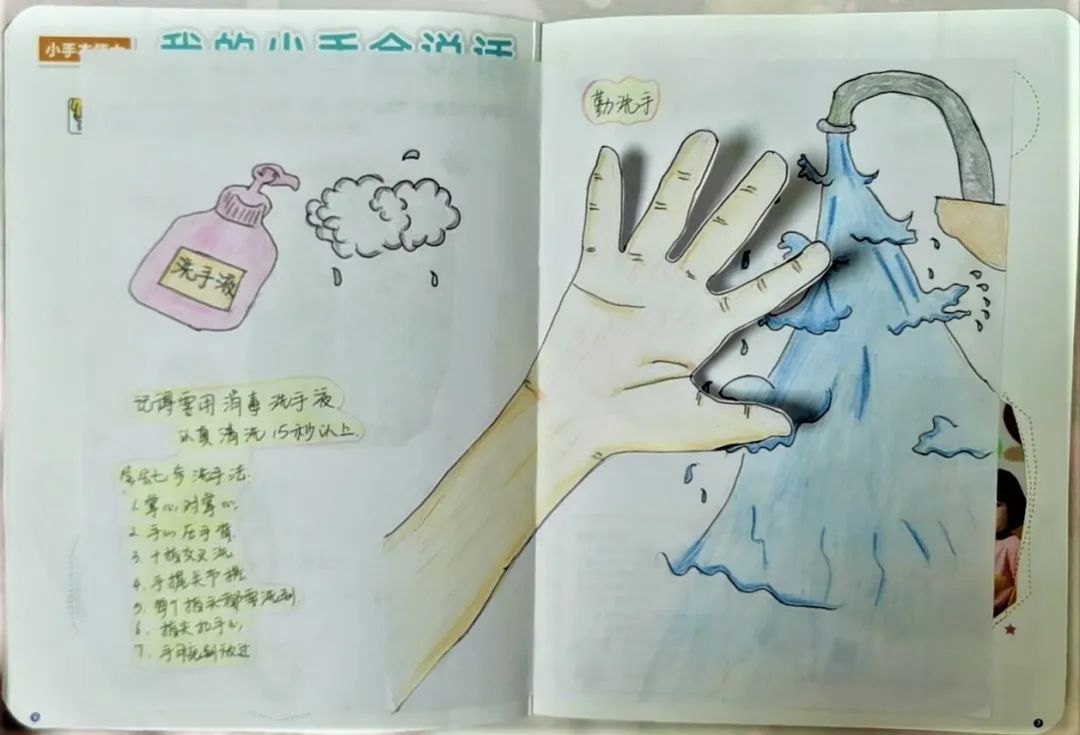 我的小手会说话
勤洗手
洗手液
记得要用消毒洗手液
认真清洗15秒以上.
学会七步洗手法.
1. 掌心对掌心.
2. 手心压手背.
3. 十指交叉洗
4. 手握关节搓
5. 每个指头都要洗到.
6. 指尖扣手心
7. 手腕别放过
6
7